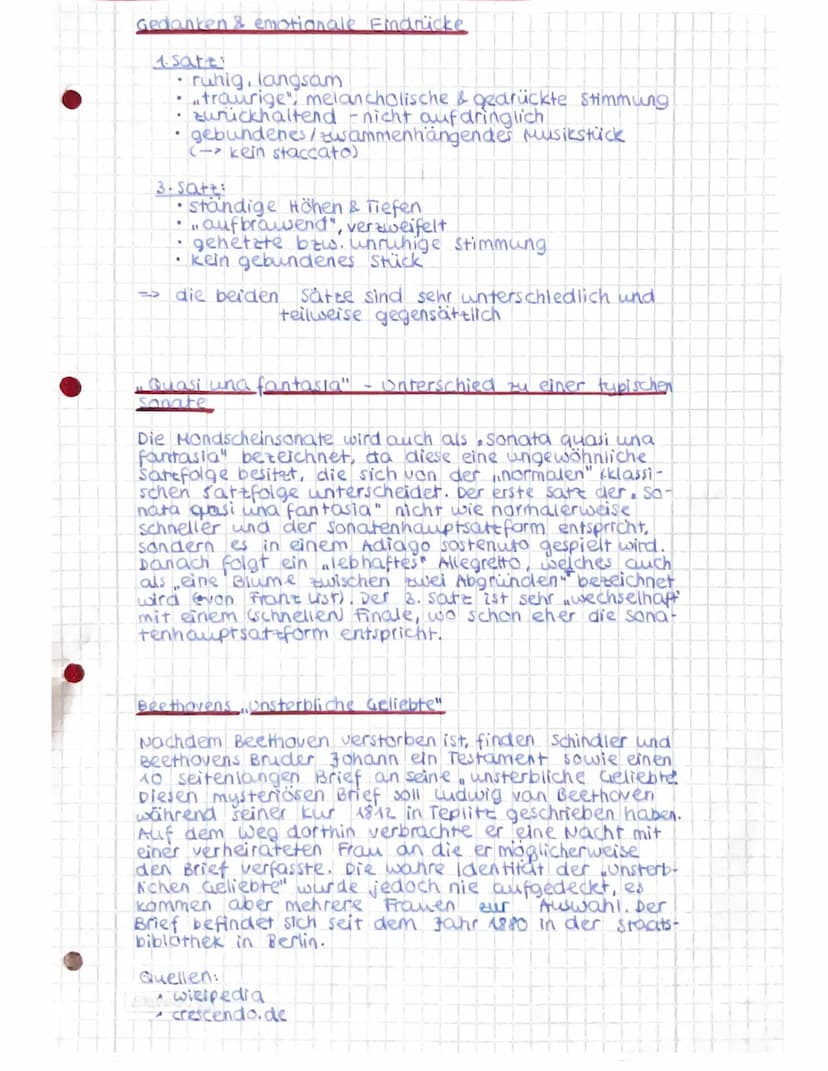 Gedanken & emotionale Eindrücke
1. Satz:
• ruhig, langsam
• „traurige", melancholische & gedrückte Stimmung
• zurückhaltend - nicht aufdringlich
• gebundenes/zusammenhängendes Musikstück
(-> kein staccato)
3. Satz:
• ständige Höhen & Tiefen
• „aufbrawend", verzweifelt
• gehetzte bzw. unruhige Stimmung
• kein gebundenes Stück
=> die beiden Sätze sind sehr unterschiedlich und
teilweise gegensätzlich
„Quasi una fantasia" - Unterschied zu einer typischen
Sonate
Die Mondscheinsonate wird auch als „Sonata quasi una
fantasia" bezeichnet, da diese eine ungewöhnliche
Satzfolge besitzt, die sich von der „normalen" (klassi-
schen Satzfolge unterscheidet. Der erste Satz der „So-
nata quasi una fantasia" nicht wie normalerweise
schneller und der Sonatenhauptsatzform entspricht,
sondern es in einem Adiago sostenuto gespielt wird.
Danach folgt ein „lebhaftes" Allegretto, welches auch
als „eine Blume zwischen zwei Abgründen" bezeichnet
wird (von Franz Liszt). Der 3. Satz ist sehr „wechselhaft"
mit einem (schnellen) Finale, wo schon eher die Sona-
tenhauptsatzform entspricht.
Beethovens „Unsterbliche Geliebte"
Nachdem Beethoven verstorben ist, finden Schindler und
Beethovens Bruder Johann ein Testament sowie einen
10 seitenlangen Brief an seine „unsterbliche Geliebte".
Diesen mysteriösen Brief soll Ludwig van Beethoven
während seiner Kur 1812 in Teplitz geschrieben haben.
Auf dem Weg dorthin verbrachte er eine Nacht mit
einer verheirateten Frau an die er möglicherweise
den Brief verfasste. Die wahre Identität der „Unsterb-
lichen Geliebte" wurde jedoch nie aufgedeckt, es
kommen aber mehrere Frauen zur Auswahl. Der
Brief befindet sich seit dem Jahr 1880 in der Staats-
bibliothek in Berlin.
Quellen:
• wikipedia
• crescendo.de